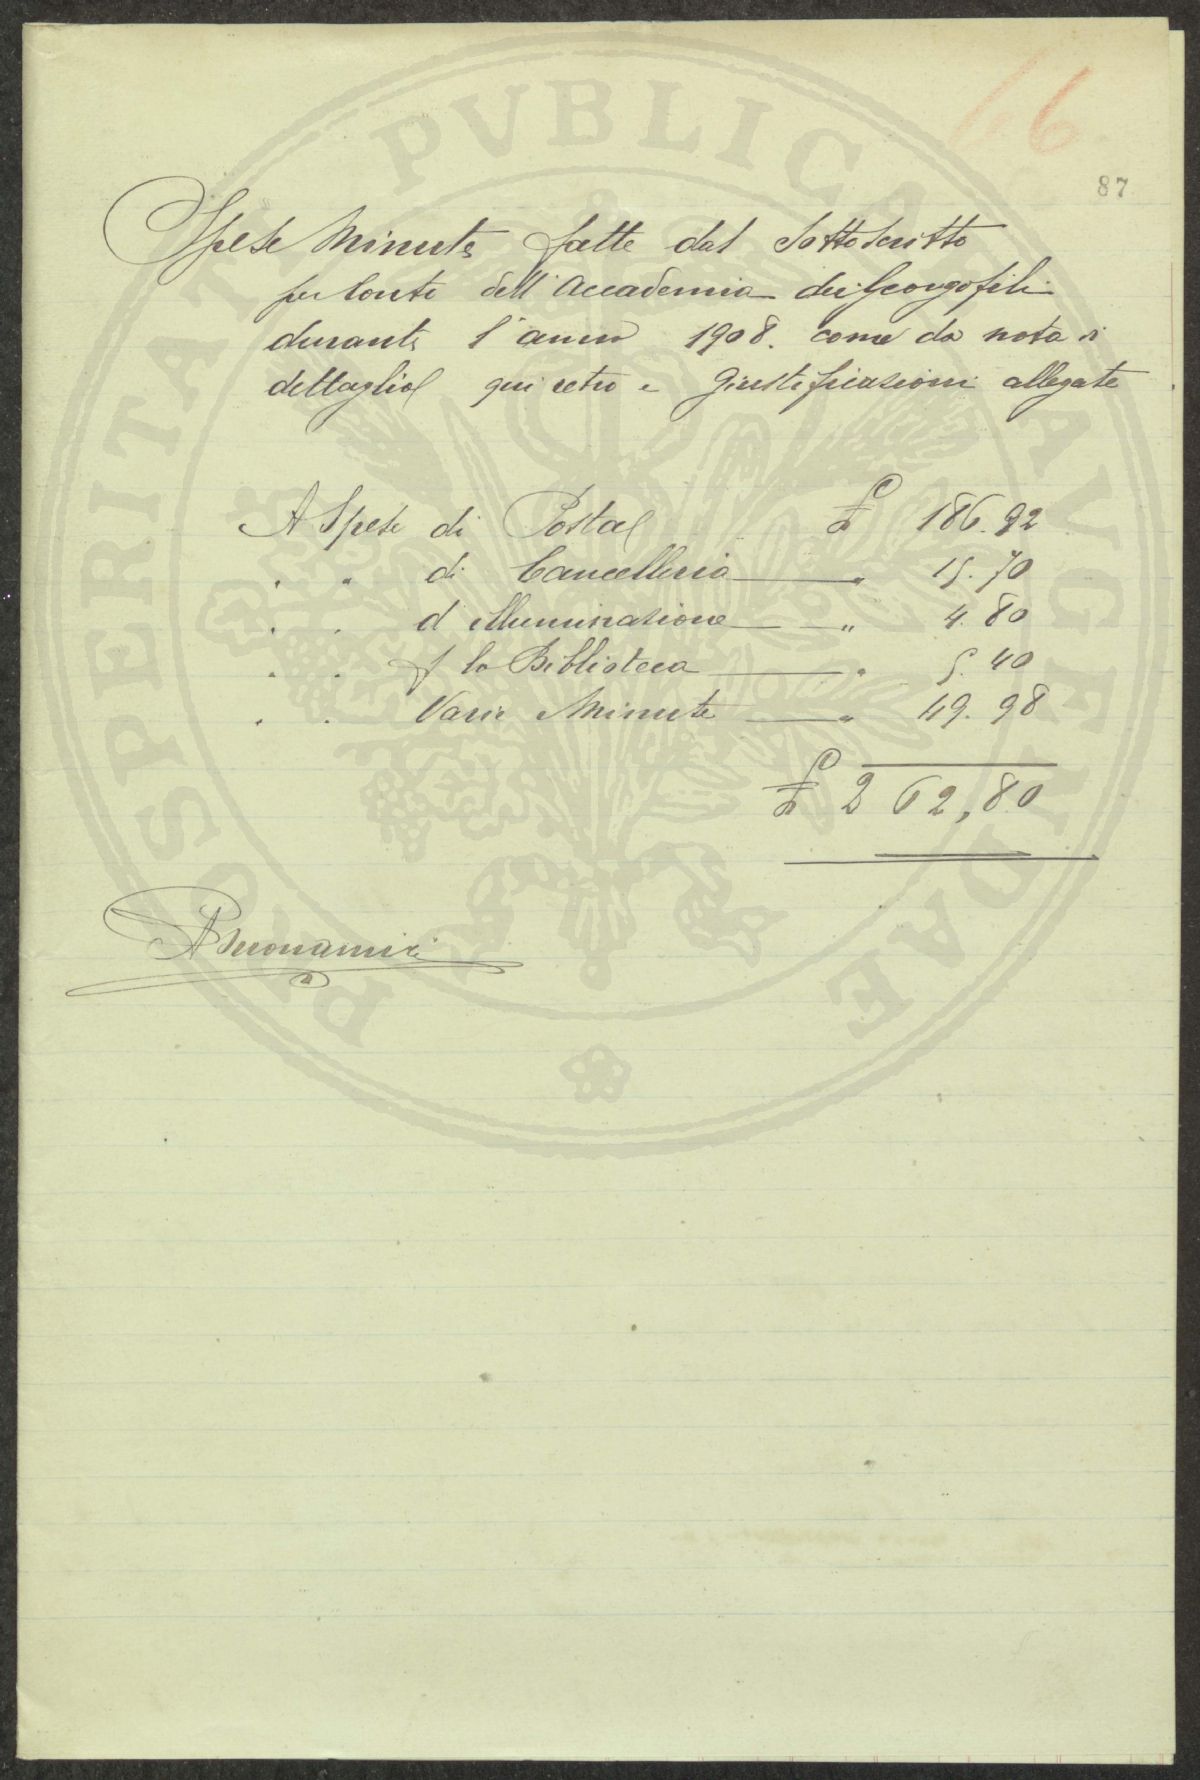 PROSPERITATI PVBLICAE AVGENDAE
66
87
Spese Minute fatte dal Sottoscritto
per Conto dell'Accademia dei Georgofili
durante l'anno 1908. come da nota di
dettaglio qui retro e Giustificazioni allegate
A Spese di Posta £ 186.92
" " di Cancelleria " 15.70
" " d'illuminazione " 4.80
" " p la Biblioteca " 5.40
" " Varie Minute " 49.98
£ 262,80
A Buonamici